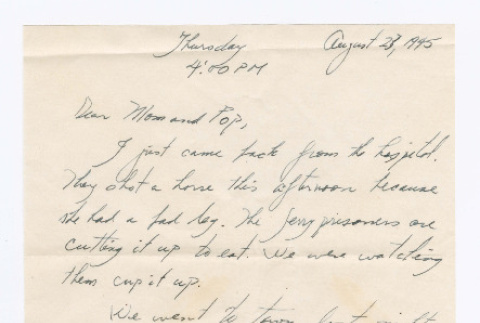 Thursday August 23, 1945
4:00 PM
Dear Mom and Pop,
I just came back from the hospital.
They shot a horse this afternoon because
she had a bad leg. The Jerry prisoners are
cutting it up to eat. We were watching
them cup it up.
We went to town last night